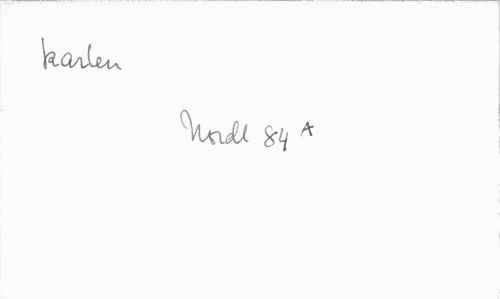 karlen
Nordl 84 A